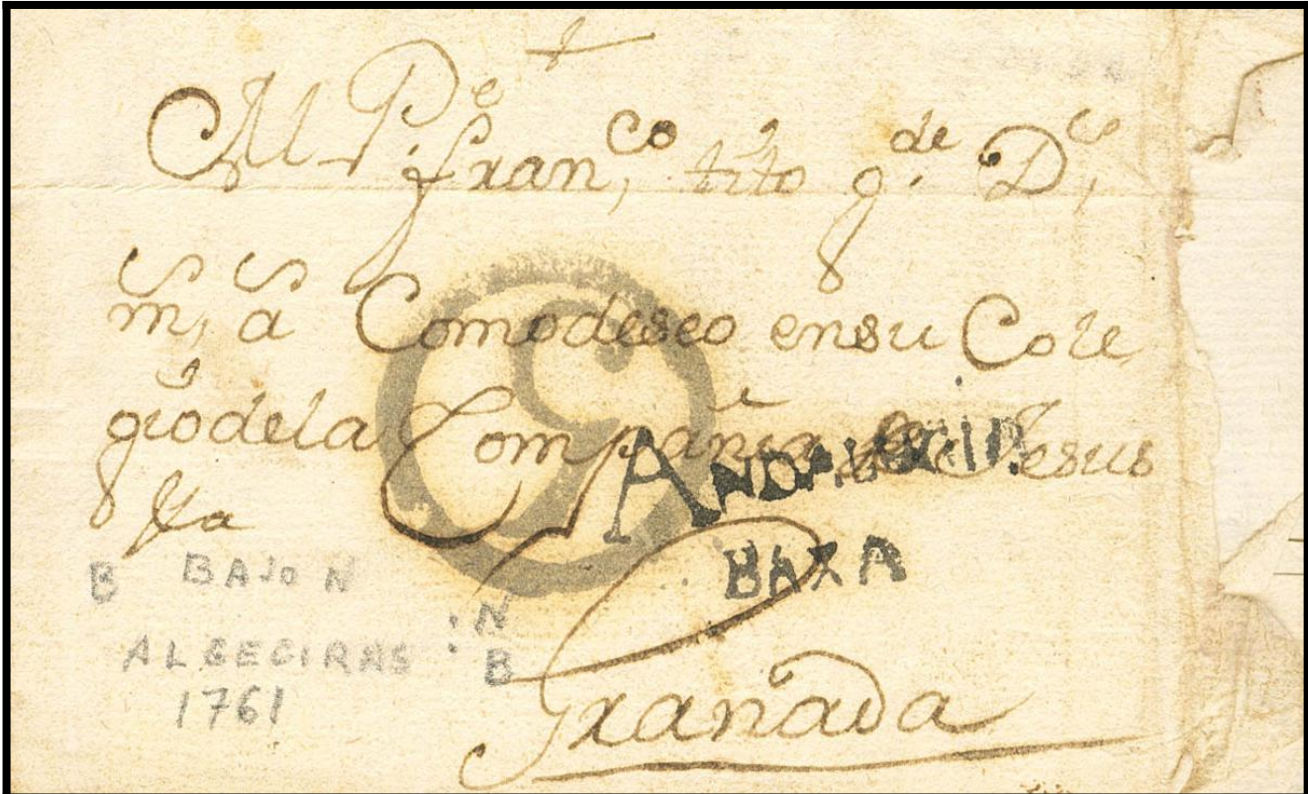 Al Pe Franco, tito g.de Ds,
ms, as Como deseo en su Cole
gio de la Compañia de Jesus
5
ANDALUCIA
BAXA
B BAJO N
ALGECIRAS : N
B
1761
Granada